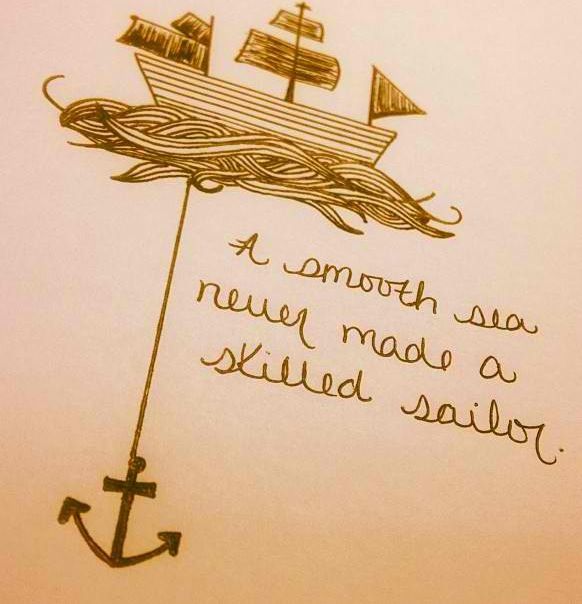 A smooth sea
never made a
skilled sailor.